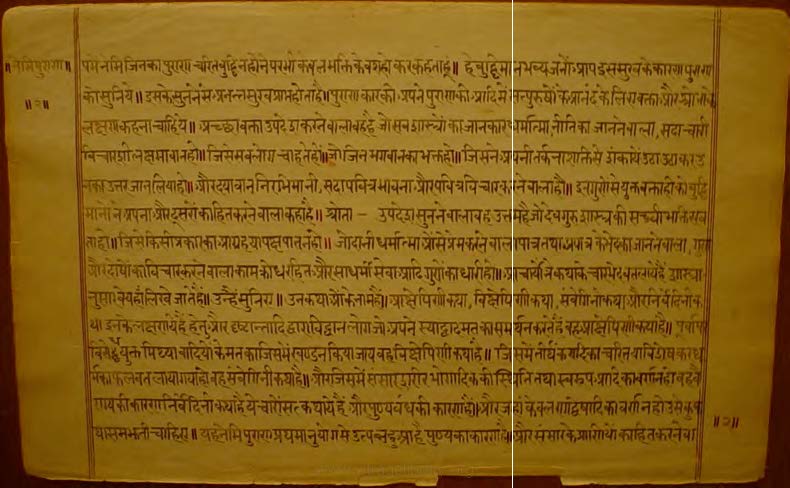 ॥नेमिपुराण॥
॥२॥
पमे नेमिजिनका पुराण चरित बुद्धि नहोनेपरभी केवल भक्तिकेवशहो कर कहताहूं॥ हे बुद्धिमान भव्यजनों! प्राप इससुखकेकारण पुराण
को सुनिये॥ इसके सुननेसे प्रनन्तसुखप्राप्तहोताहै॥ पुराणकारको प्रपने पुराणकी प्रादिमें सत्पुरुषोंके प्रानंदके लिए वक्ता प्रौर श्रोताके
लक्षण कहना चाहिये॥ प्रच्छावक्ता उपदेशकरनेवाला वहहै जो सबशास्त्रों का जानकार धर्मात्मा नीतिका जाननेवाला, सदाचारी
विचारशील क्षमावानहो॥ जिसे सबलोग चाहतेहों॥ जो जिनभगवानका भक्तहो॥ जिसने प्रपनी तर्कनाशक्तिसे शंकायें उठा उठाकर उ
नका उत्तर जानलियाहो॥ प्रौर दयावान निरभिमानी, सदापवित्रभावना प्रौर पवित्रविचार करनेवालाहो॥ इनगुणोंसे युक्तवक्ताहीको बुद्धि
मानोंने प्रपना प्रौर दूसरोंका हितकरनेवाला कहाहै॥ श्रोता - उपदेशसुननेवाला वह उत्तमहै जो देवगुरुशास्त्रकी सच्चीभक्ति रख
ताहो॥ जिसे किसीप्रकारका प्राग्रह या पक्षपात नहो॥ जो दानी धर्मात्माप्रोंसे प्रेमकरनेवाला पात्रतथा प्रपात्र के भेदका जाननेवाला, गुण
प्रौर दोषोंका विचारकरनेवाला कामक्रोधरहित प्रौर साधर्मीसेवा प्रादि गुणोंका धारीहो॥ प्राचार्योंने कथाके चारभेद बतलायेहैं शास्त्रा
नुसार वेयहां लिखेजातेहैं॥ उन्हें सुनिए॥ उनकथाप्रोंकेनामहैं॥ प्राक्षेपिणीकथा, विक्षेपिणीकथा, संवेगिनीकथा प्रौर निर्वेदिनीक
था इनकेलक्षणयेहैं हेतु प्रौर दृष्टान्तादि द्वारा विद्वानलोग जो प्रपने स्याद्वादमतका समर्थन करतेहैं वह प्राक्षेपिणीकथाहै॥ पूर्वापर
विरोधयुक्त मिथ्यावादियोंके मतका जिसमें खण्डनकियाजाय वह विक्षेपिणीकथाहै॥ जिसमें तीर्थंकरादिका चरित या विशेषकर ध
र्मकाफल बतलायागयाहो वह संवेगिनीकथाहै॥ प्रौरजिसमें संसार शरीर भोगादिककी स्थिति तथा स्वरूप प्रादिका वर्णनहो वह वै
राग्यकीकारण निर्वेदिनीकथाहै ये चारों सत्कथायेंहैं प्रौर पुण्यबंधकी कारणहैं॥ प्रौर जहां केवल रागद्वेषादिका वर्णनहो उसे कुक
थासमझनीचाहिए॥ यह नेमिपुराण प्रथमानुयोगसे उत्पन्नहुप्राहै पुण्यका कारणहै॥ प्रौर संसारके प्राणियोंका हितकरनेवा
॥२॥